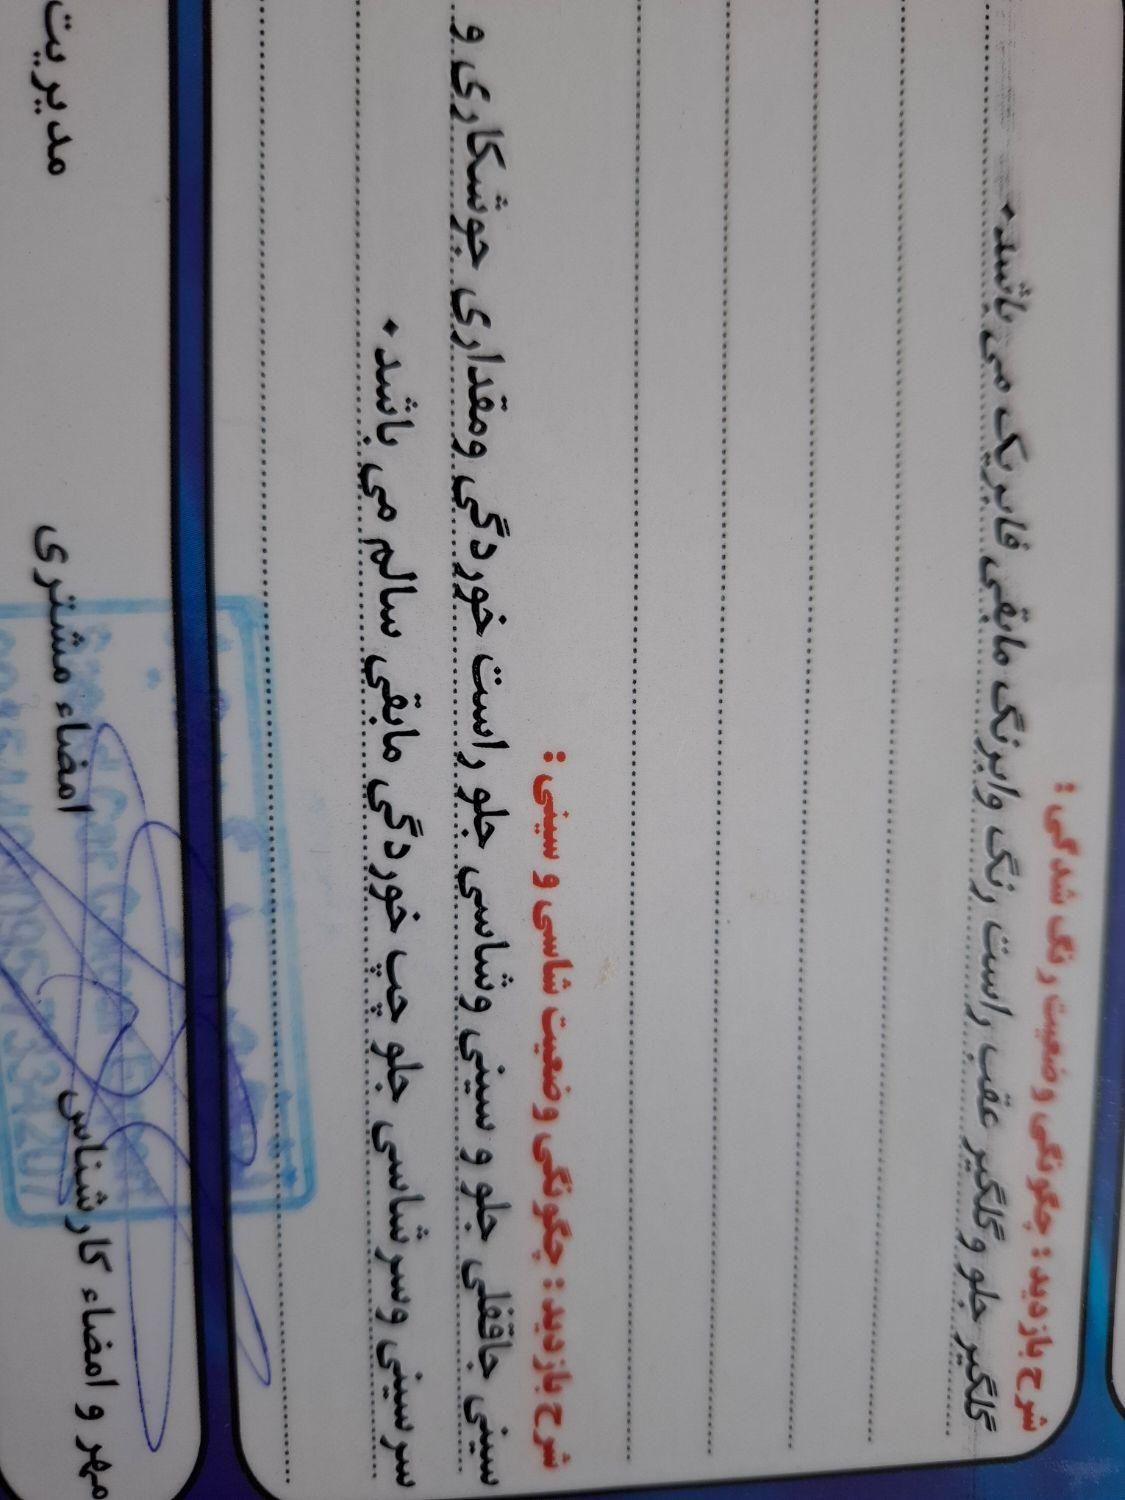 شرح بازدید : چگونگی وضعیت رنگ شدگی :
گلگیر جلو و گلگیر عقب راست رنگ وابرنگ مابقی فابریک می باشد.
شرح بازدید : چگونگی وضعیت شاسی و سینی :
سینی جاقفلی جلو و سینی وشاسی جلو راست خوردگی ومقداری جوشکاری و
سرسینی وسرشاسی جلو چپ خوردگی مابقی سالم می باشد.
مهر و امضاء کارشناس امضاء مشتری مدیریت